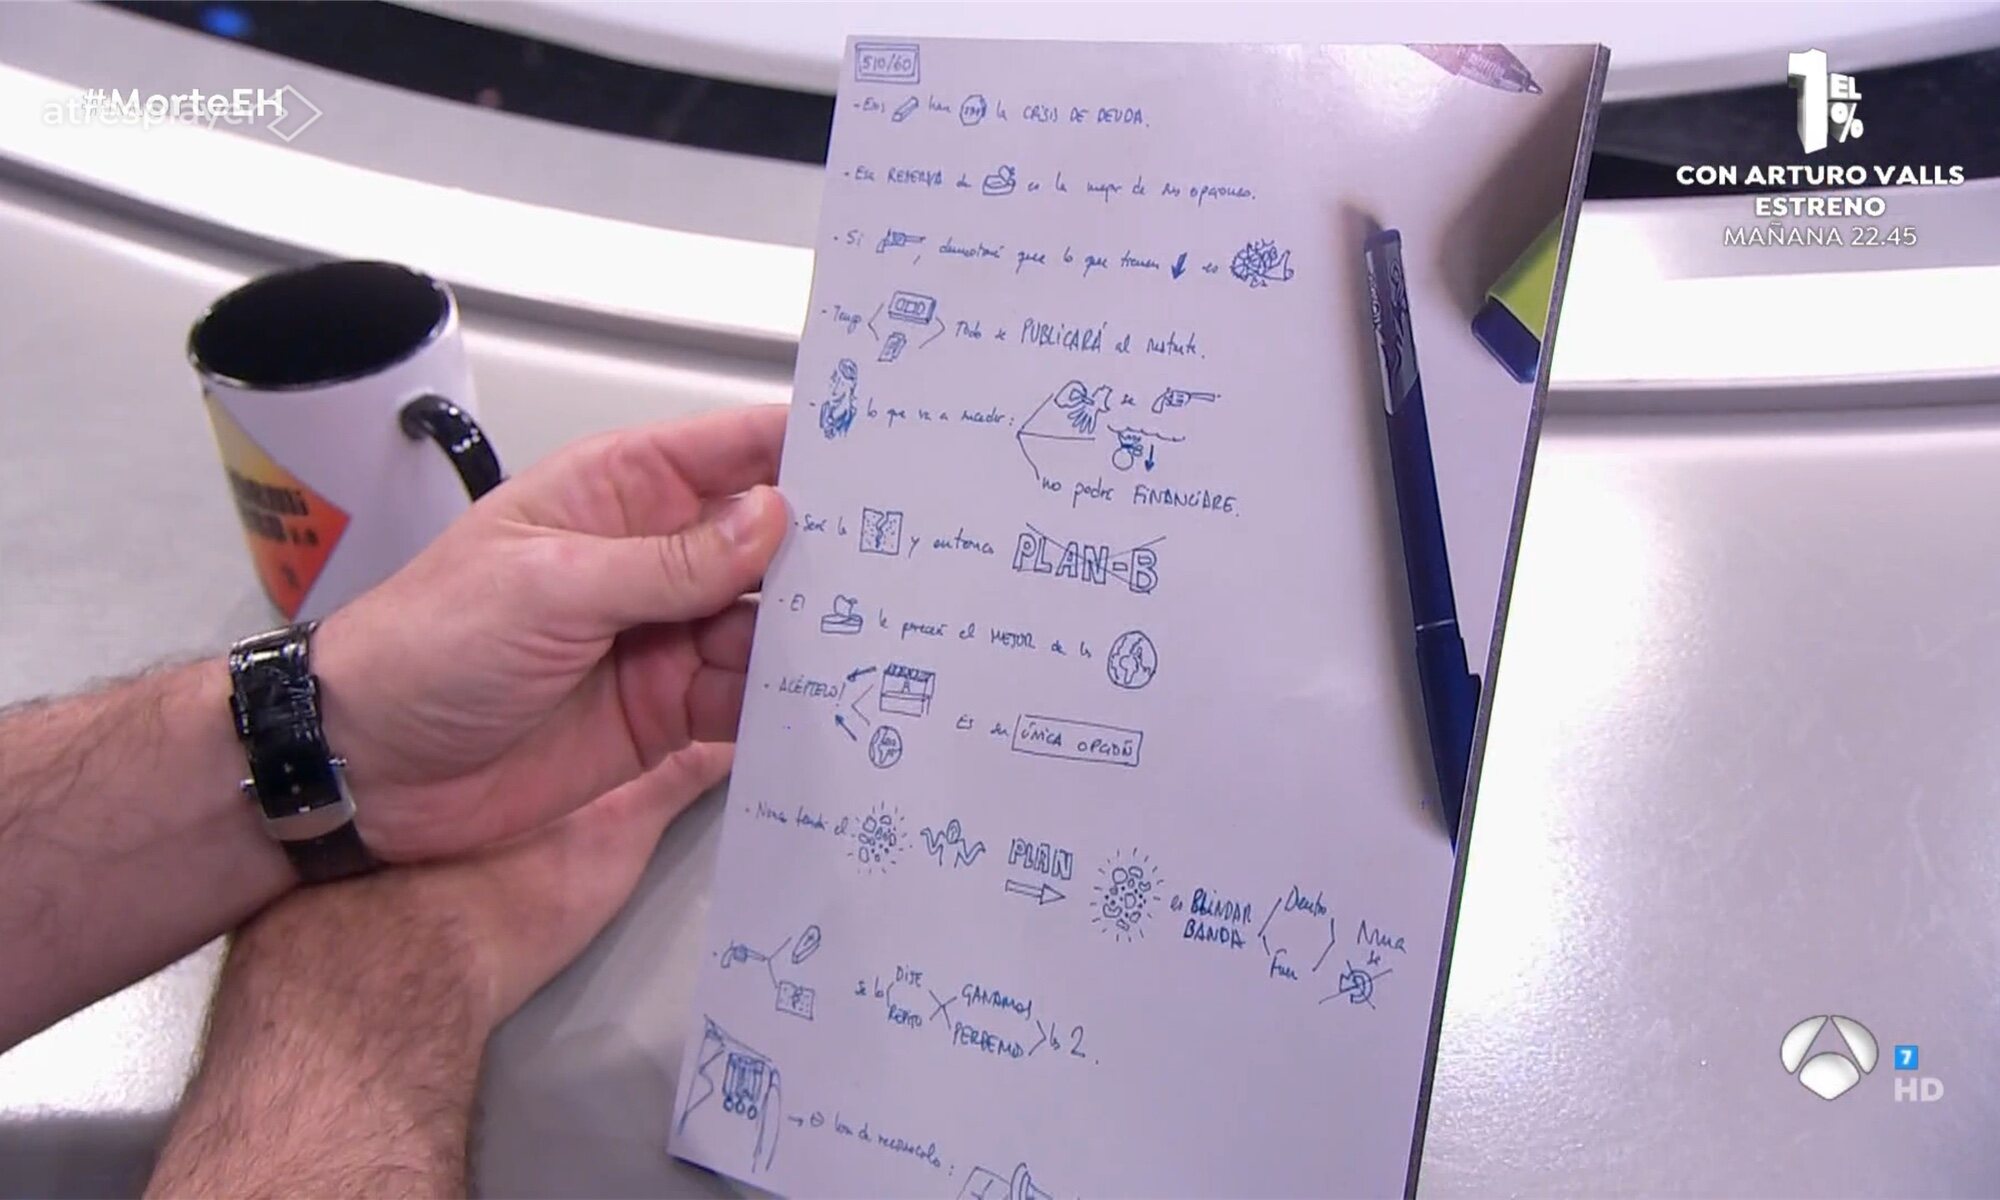 #MorteEH
atresplayer
1 EL %
CON ARTURO VALLS
ESTRENO
MAÑANA 22.45
510/60
- Esos han la CRISIS DE DEUDA.
- Esa RESERVA de es la mejor de sus opciones.
- Si , demostraré que lo que tienen es
- Tengo Todo se PUBLICARÁ al instante.
- lo que va a suceder: se
no podré FINANCIARE.
- Será la y entonces PLAN-B
- El le parecerá el MEJOR de los
- ACÉPTELO! Es su ÚNICA OPCIÓN
- Nunca tendrá el PLAN es BLINDAR BANDA Dentro Fuera Nunca se
- se lo DIJE REPITO GANAMOS PERDEMOS los 2.
reconocerlo:
7
HD